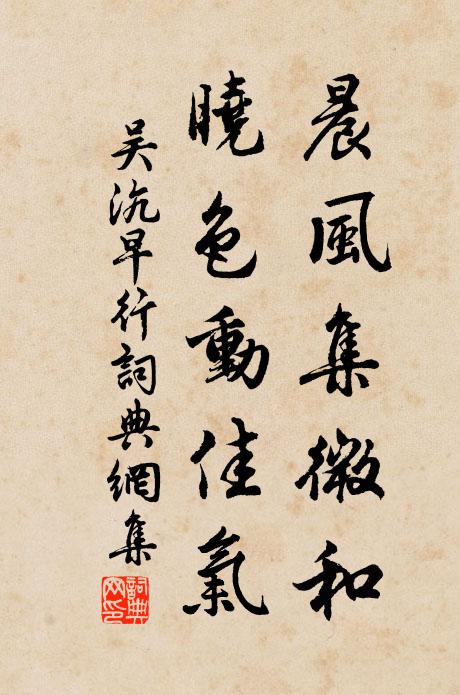 晨風集微和
曉色動佳氣
吴沆早行詞典網集
詞典網印